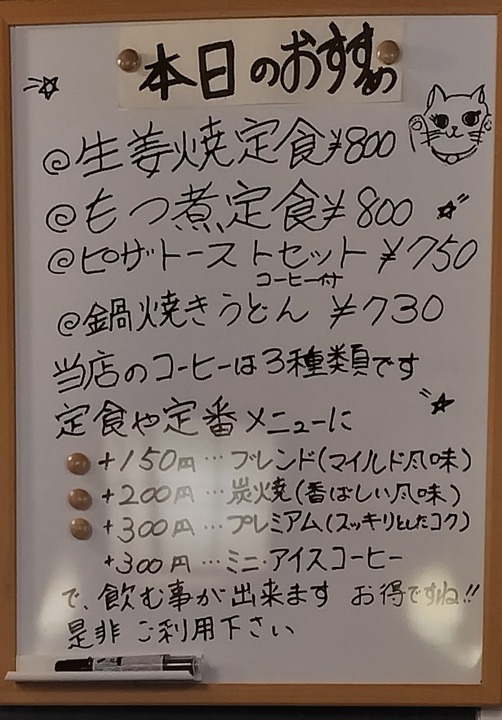 本日のおすすめ
@生姜焼定食¥800
@もつ煮定食¥800
@ピザトーストセット¥750
コーヒー付
@鍋焼きうどん ¥730
当店のコーヒーは3種類です
定食や定番メニューに
+150円…ブレンド(マイルド風味)
+200円…炭火焼(香ばしい風味)
+300円…プレミアム(スッキリとしたコク)
+300円…ミニ・アイスコーヒー
で、飲む事が出来ます お得ですね!!
是非 ご利用下さい